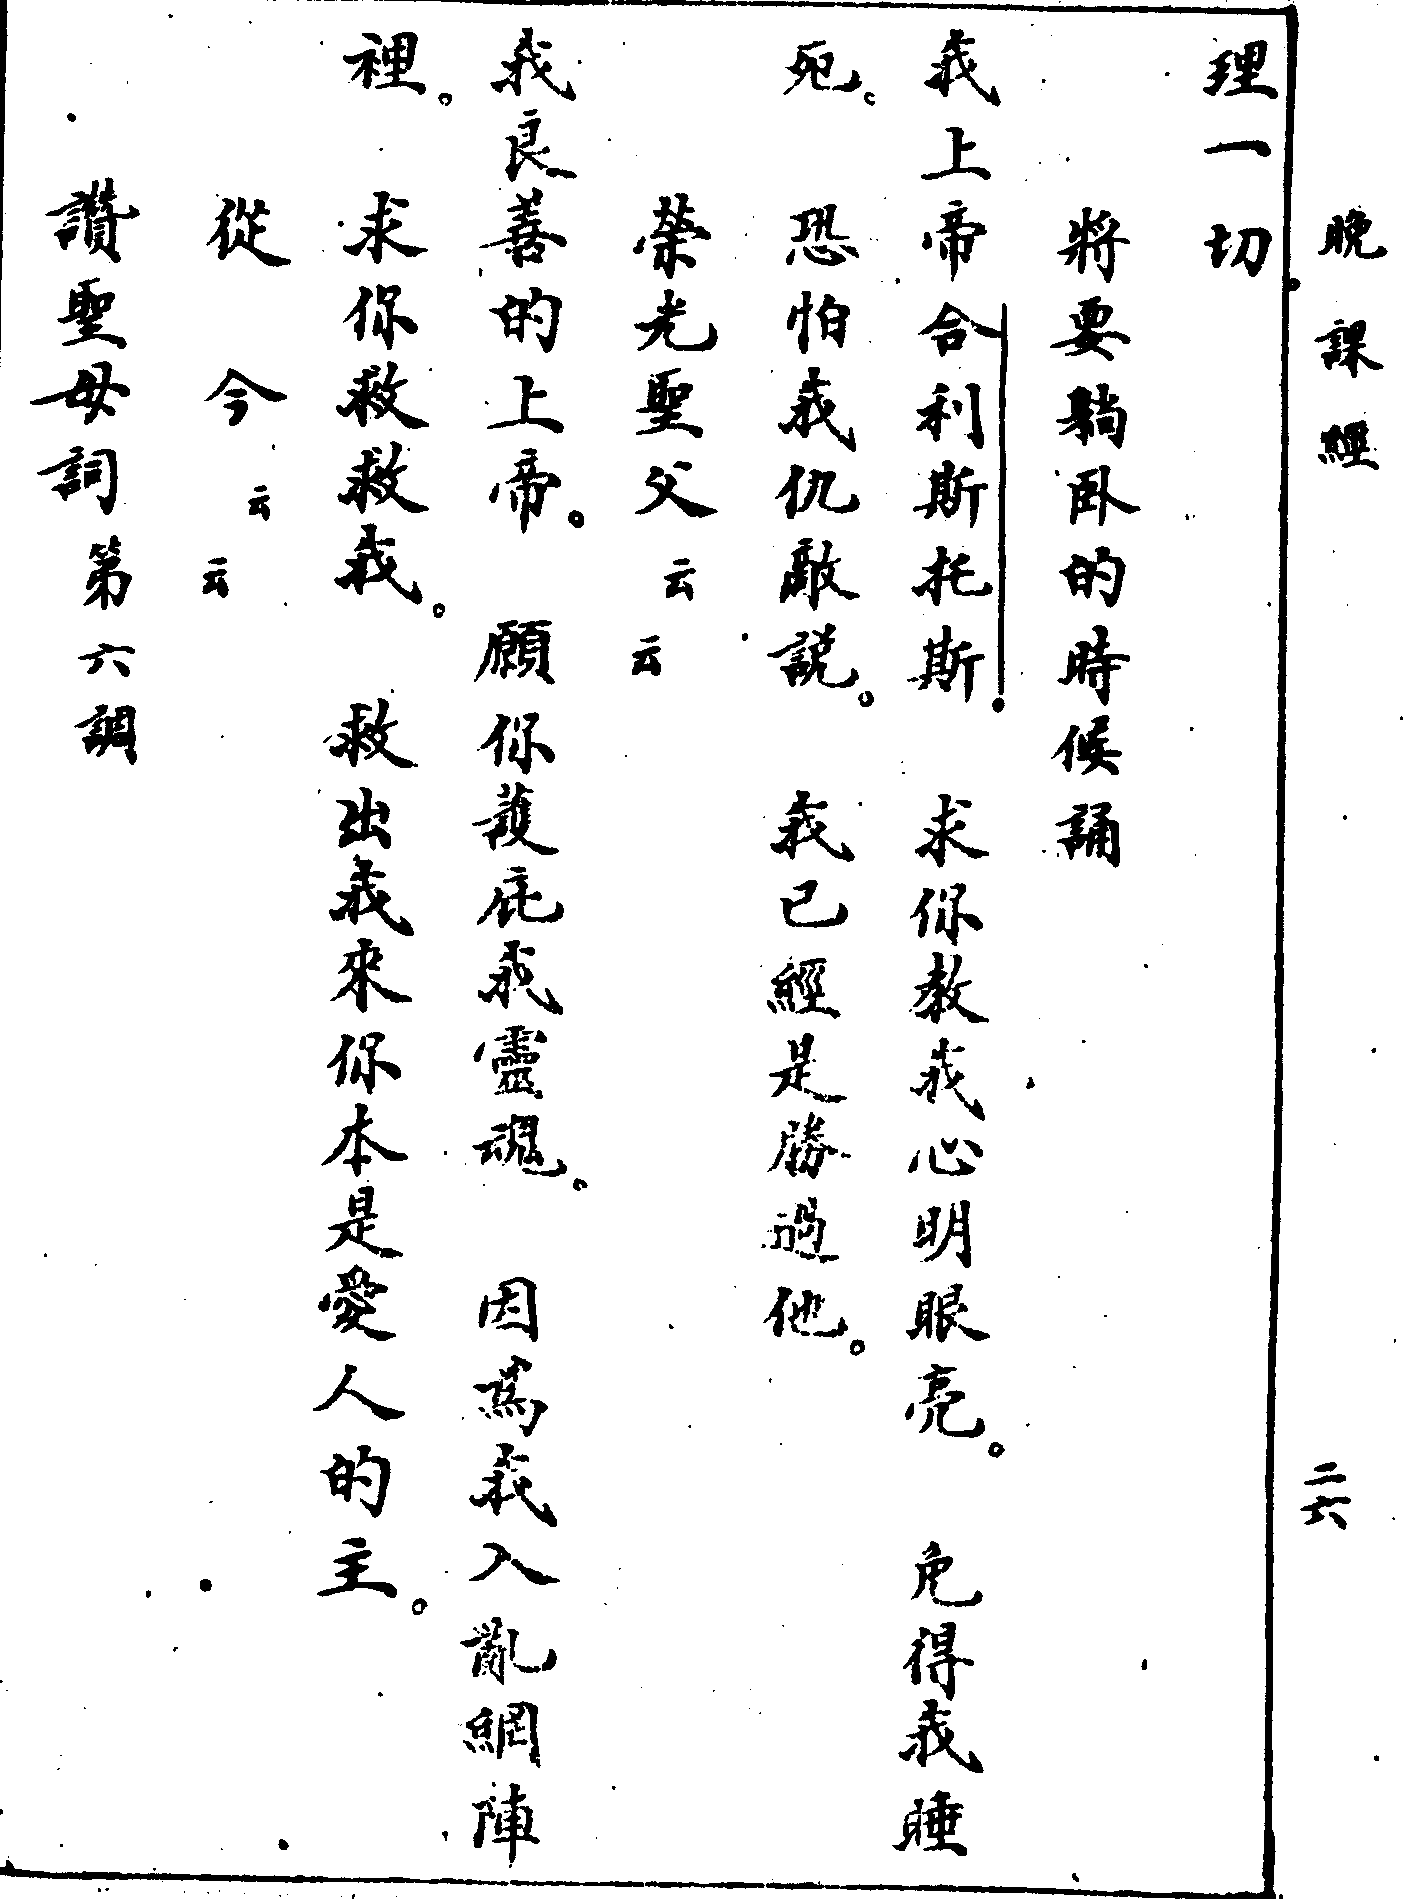 晚課經 二六
理一切。
將要躺卧的時候誦
我上帝合利斯托斯。 求你教我心明眼亮。 免得我睡
死。 恐怕我仇敵説。 我已經是勝過他。
榮光聖父云云
我良善的上帝。 願你護庇我靈魂。 因爲我入亂網陣
裡。 求你救救我。 救出我來你本是愛人的主。
從今云云
讚聖母詞第六調